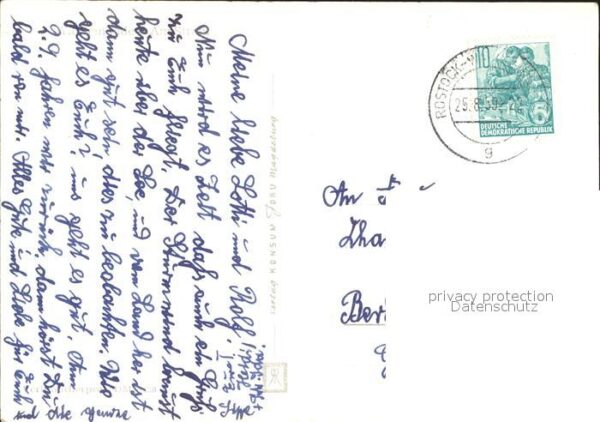 Meine liebe Lotti und Rolf!
Nun wird es Zeit daß auch ein Gruß
zu Euch fliegt. Der Sturmwind braust
heute über die See, und vom Land her ist
dann gut sein dies zu beobachten. Wie
geht es Euch? uns geht es gut. Am
2.9. fahren wir zurück, dann hörst Du
bald von mir. Alles Gute und Liebe für Euch
und die ganze
VERLAG KONSUM FOKU Magdeburg
ROSTOCK
25.8.59
g
10
DEUTSCHE
DEMOKRATISCHE REPUBLIK
An
Ber
privacy protection
Datenschutz